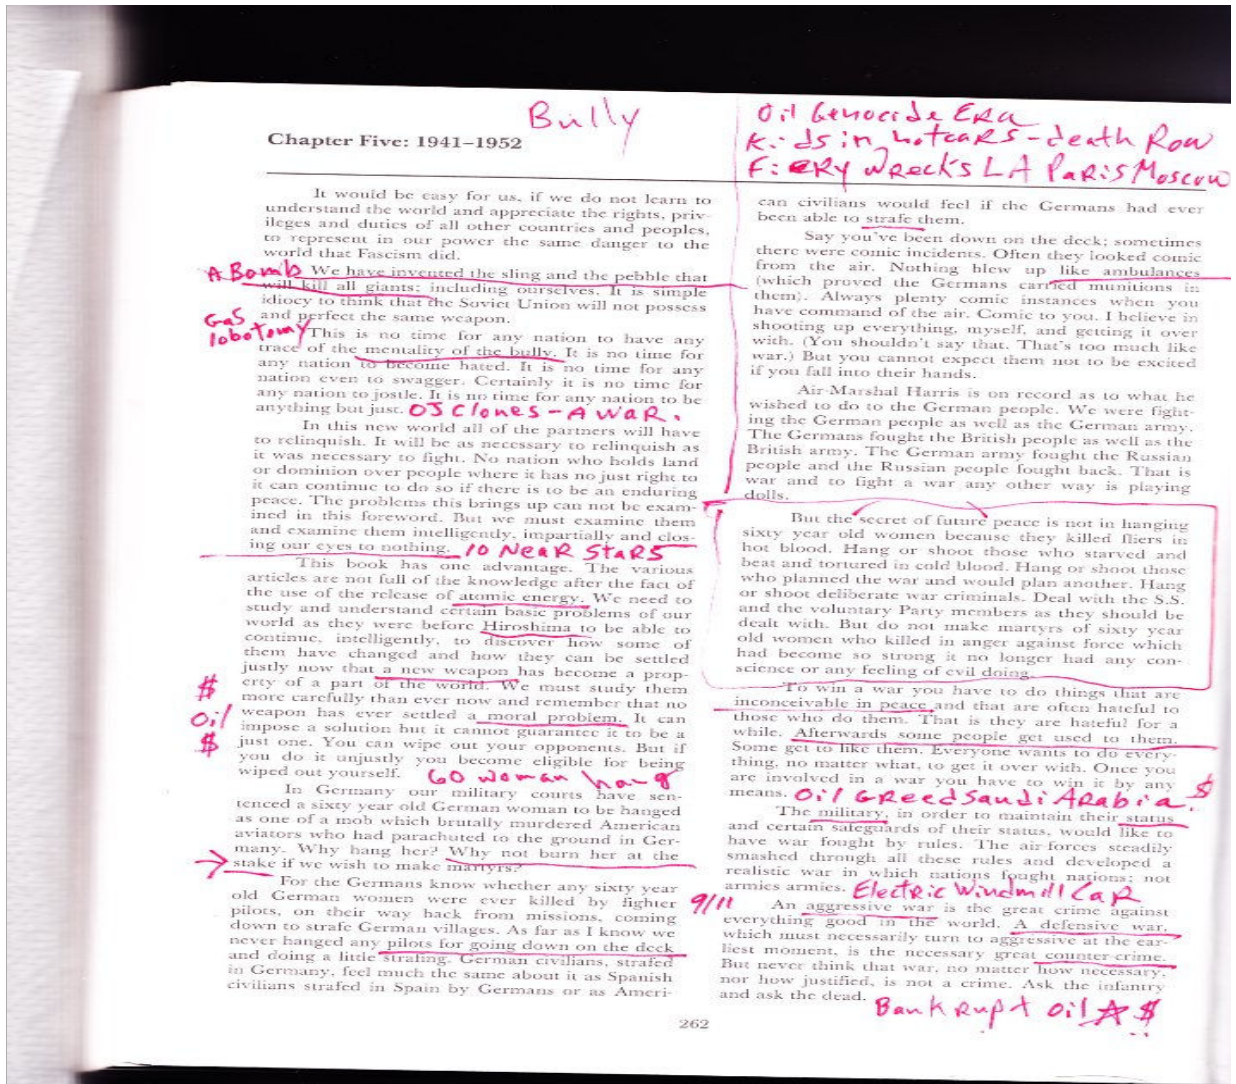 Bully
Oil Genocide ERA
Kids in hotcars - death Row
FiERY WRecks LA PaRis Moscow
Chapter Five: 1941–1952
It would be easy for us, if we do not learn to
understand the world and appreciate the rights, priv-
ileges and duties of all other countries and peoples,
to represent in our power the same danger to the
world that Fascism did.
A Bomb We have invented the sling and the pebble that
will kill all giants; including ourselves. It is simple
idiocy to think that the Soviet Union will not possess
and perfect the same weapon.
Gas
lobotomy
This is no time for any nation to have any
trace of the mentality of the bully. It is no time for
any nation to become hated. It is no time for any
nation even to swagger. Certainly it is no time for
any nation to jostle. It is no time for any nation to be
anything but just. OJ Clones - A WAR.
In this new world all of the partners will have
to relinquish. It will be as necessary to relinquish as
it was necessary to fight. No nation who holds land
or dominion over people where it has no just right to
it can continue to do so if there is to be an enduring
peace. The problems this brings up can not be exam-
ined in this foreword. But we must examine them
and examine them intelligently, impartially and clos-
ing our eyes to nothing. 10 NeaR StaRS
This book has one advantage. The various
articles are not full of the knowledge after the fact of
the use of the release of atomic energy. We need to
study and understand certain basic problems of our
world as they were before Hiroshima to be able to
continue, intelligently, to discover how some of
them have changed and how they can be settled
justly now that a new weapon has become a prop-
erty of a part of the world. We must study them
more carefully than ever now and remember that no
weapon has ever settled a moral problem. It can
impose a solution but it cannot guarantee it to be a
just one. You can wipe out your opponents. But if
you do it unjustly you become eligible for being
wiped out yourself. 60 woman hang
$
Oil
$
In Germany our military courts have sen-
tenced a sixty year old German woman to be hanged
as one of a mob which brutally murdered American
aviators who had parachuted to the ground in Ger-
many. Why hang her? Why not burn her at the
stake if we wish to make martyrs?
For the Germans know whether any sixty year
old German women were ever killed by fighter
pilots, on their way back from missions, coming
down to strafe German villages. As far as I know we
never hanged any pilots for going down on the deck
and doing a little strafing. German civilians, strafed
in Germany, feel much the same about it as Spanish
civilians strafed in Spain by Germans or as Ameri-
can civilians would feel if the Germans had ever
been able to strafe them.
Say you've been down on the deck; sometimes
there were comic incidents. Often they looked comic
from the air. Nothing blew up like ambulances
(which proved the Germans carried munitions in
them). Always plenty comic instances when you
have command of the air. Comic to you. I believe in
shooting up everything, myself, and getting it over
with. (You shouldn't say that. That's too much like
war.) But you cannot expect them not to be excited
if you fall into their hands.
Air-Marshal Harris is on record as to what he
wished to do to the German people. We were fight-
ing the German people as well as the German army.
The Germans fought the British people as well as the
British army. The German army fought the Russian
people and the Russian people fought back. That is
war and to fight a war any other way is playing
dolls.
But the secret of future peace is not in hanging
sixty year old women because they killed fliers in
hot blood. Hang or shoot those who starved and
beat and tortured in cold blood. Hang or shoot those
who planned the war and would plan another. Hang
or shoot deliberate war criminals. Deal with the S.S.
and the voluntary Party members as they should be
dealt with. But do not make martyrs of sixty year
old women who killed in anger against force which
had become so strong it no longer had any con-
science or any feeling of evil doing.
To win a war you have to do things that are
inconceivable in peace and that are often hateful to
those who do them. That is they are hateful for a
while. Afterwards some people get used to them.
Some get to like them. Everyone wants to do every-
thing, no matter what, to get it over with. Once you
are involved in a war you have to win it by any
means. Oil GReed Saudi ARabia. $
The military, in order to maintain their status
and certain safeguards of their status, would like to
have war fought by rules. The air-forces steadily
smashed through all these rules and developed a
realistic war in which nations fought nations; not
armies armies. ElectRic Windmill CaR
9/11
An aggressive war is the great crime against
everything good in the world. A defensive war,
which must necessarily turn to aggressive at the ear-
liest moment, is the necessary great counter-crime.
But never think that war, no matter how necessary,
nor how justified, is not a crime. Ask the infantry
and ask the dead.
BankRupt Oil $
262